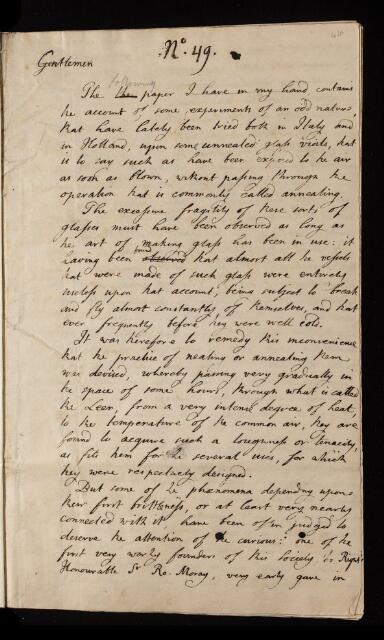 No. 49.
Gentlemen
following
The the paper I have in my hand, contains
the account of some experiments of an odd nature,
that have lately been tried both in Italy and
in Holland, upon some unnealed glass vials, that
is to say such as have been exposed to the air
as soon as blown, without passing through the
operation that is commonly called annealing.
The excessive fragility of these sorts of
glasses must have been observed as long as
the art of making glass has been in use: it
having been found observed that almost all the vessels
that were made of such glass were entirely
useless upon that account, being subject to break
and fly almost constantly of themselves, and that
ever frequently before they were well cold.
It was therefore to remedy this inconvenience
that the practice of nealing or annealing them
was devised, whereby passing very gradually in
the space of some hours, through what is called
the Leer, from a very intense degree of heat,
to the temperature of the common air, they are
found to acquire such a toughness or tenacity,
as fits them for the several uses, for which
they were respectively designed.
But some of the phænomena depending upon
their first brittleness, or at least very nearly
connected with it have been often judged to
deserve the attention of the curious: one of the
first very worthy founders of this Society the Right
Honourable Sr. Ro. Moray, very early gave in